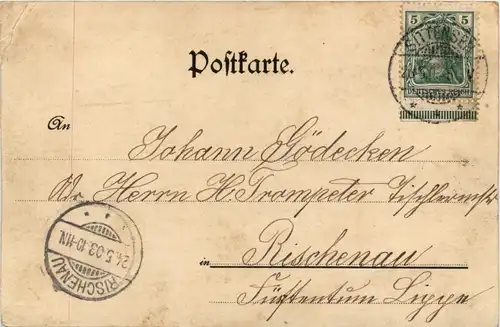 5 5
SITTENSEN
DEUTSCHES REICH
Postkarte.
An
Johann Gödecken
Adr Herrn H. Trompeter Tischlermstr
in Rischenau
Fürstentum Lippe
24.5.03.10-11N.
RISCHENAU